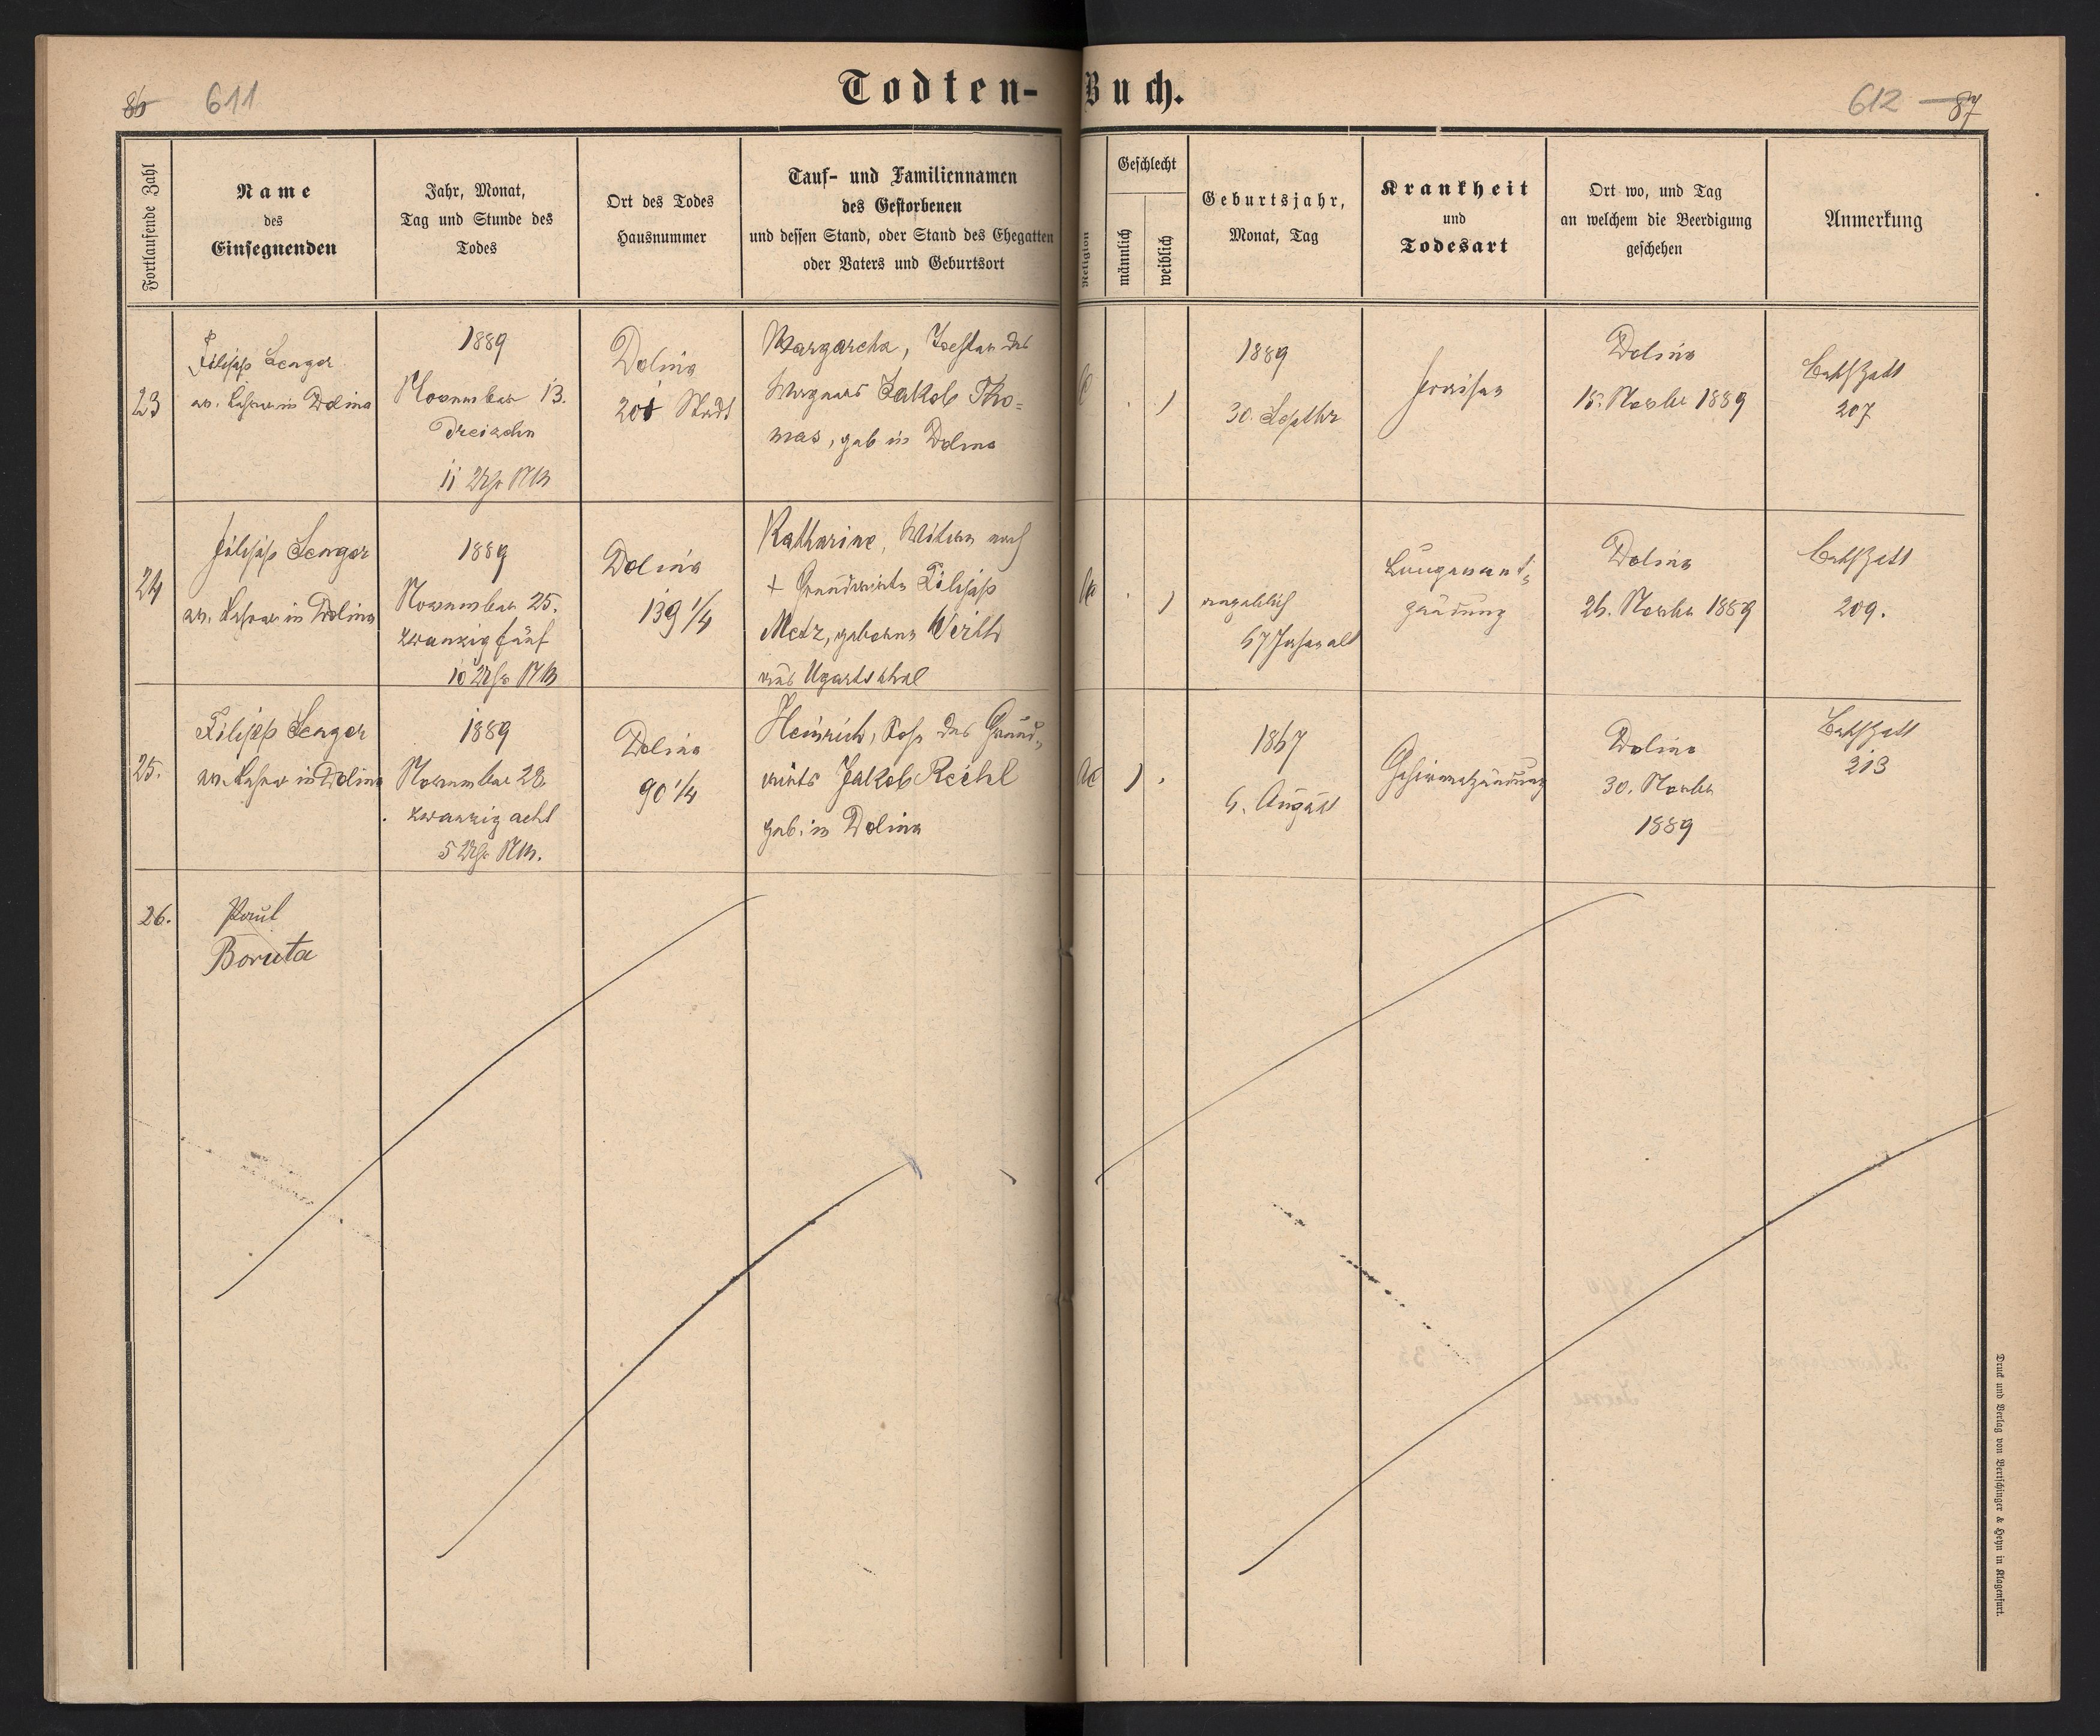 86 611
Todten-Buch.
612 87
Fortlaufende Zahl
Name
des
Einsegnenden
Jahr, Monat,
Tag und Stunde des
Todes
Ort des Todes
Hausnummer
Tauf- und Familiennamen
des Gestorbenen
und dessen Stand, oder Stand des Ehegatten
oder Vaters und Geburtsort
Religion
Geschlecht
männlich
weiblich
Geburtsjahr,
Monat, Tag
Krankheit
und
Todesart
Ort wo, und Tag
an welchem die Beerdigung
geschehen
Anmerkung
23
Filipp Senger
ev. Lehrer in Dolina
1889
November 13.
Dreizehn
11 Uhr NM
Dolina
201 Stadt
Margaretha, Tochter des
Wagners Jakob Tho=
mas, geb in Dolina
1889
30. Septbr
Fraisen
Dolina
15. Novbr 1889
207
24
Filipp Senger
ev. Lehrer in Dolina
1889
November 25.
zwanzig fünf
10 Uhr NM
Dolina
139 1/4
Katharine, Witwe nach
+ Grundwirth Filipp
Metz, geborene Werth
aus Ugartsthal
angeblich
67 Jahre alt
Lungenent=
zündung
Dolina
26. Novbr 1889
209.
25.
Filipp Senger
ev. Lehrer in Dolina
1889
November 28.
zwanzig acht
5 Uhr NM.
Dolina
90 1/4
Heinrich, Sohn des Grund=
wirts Jakob Reichl
geb. in Dolina
1867
6. August
Gehirnentzündung
Dolina
30. Novbr
1889
213
26.
Paul
Boruta
Druck und Verlag von Bertschinger & Heyn in Klagenfurt.